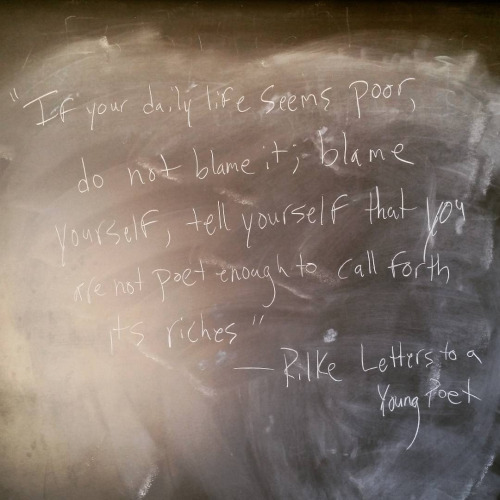 "If your daily life seems poor,
do not blame it; blame
yourself, tell yourself that you
are not poet enough to call forth
its riches"
— Rilke Letters to a
Young Poet